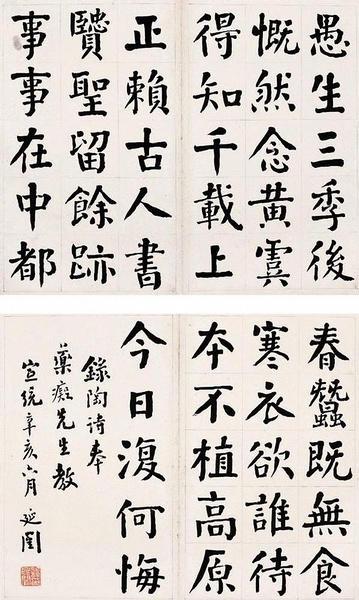 愚生三季後
慨然念黃虞
得知千載上
正賴古人書
賢聖留餘跡
事事在中都
春蠶既無食
寒衣欲誰待
本不植高原
今日復何悔
錄陶詩奉
藥癡先生教
宣統辛亥六月 延闓